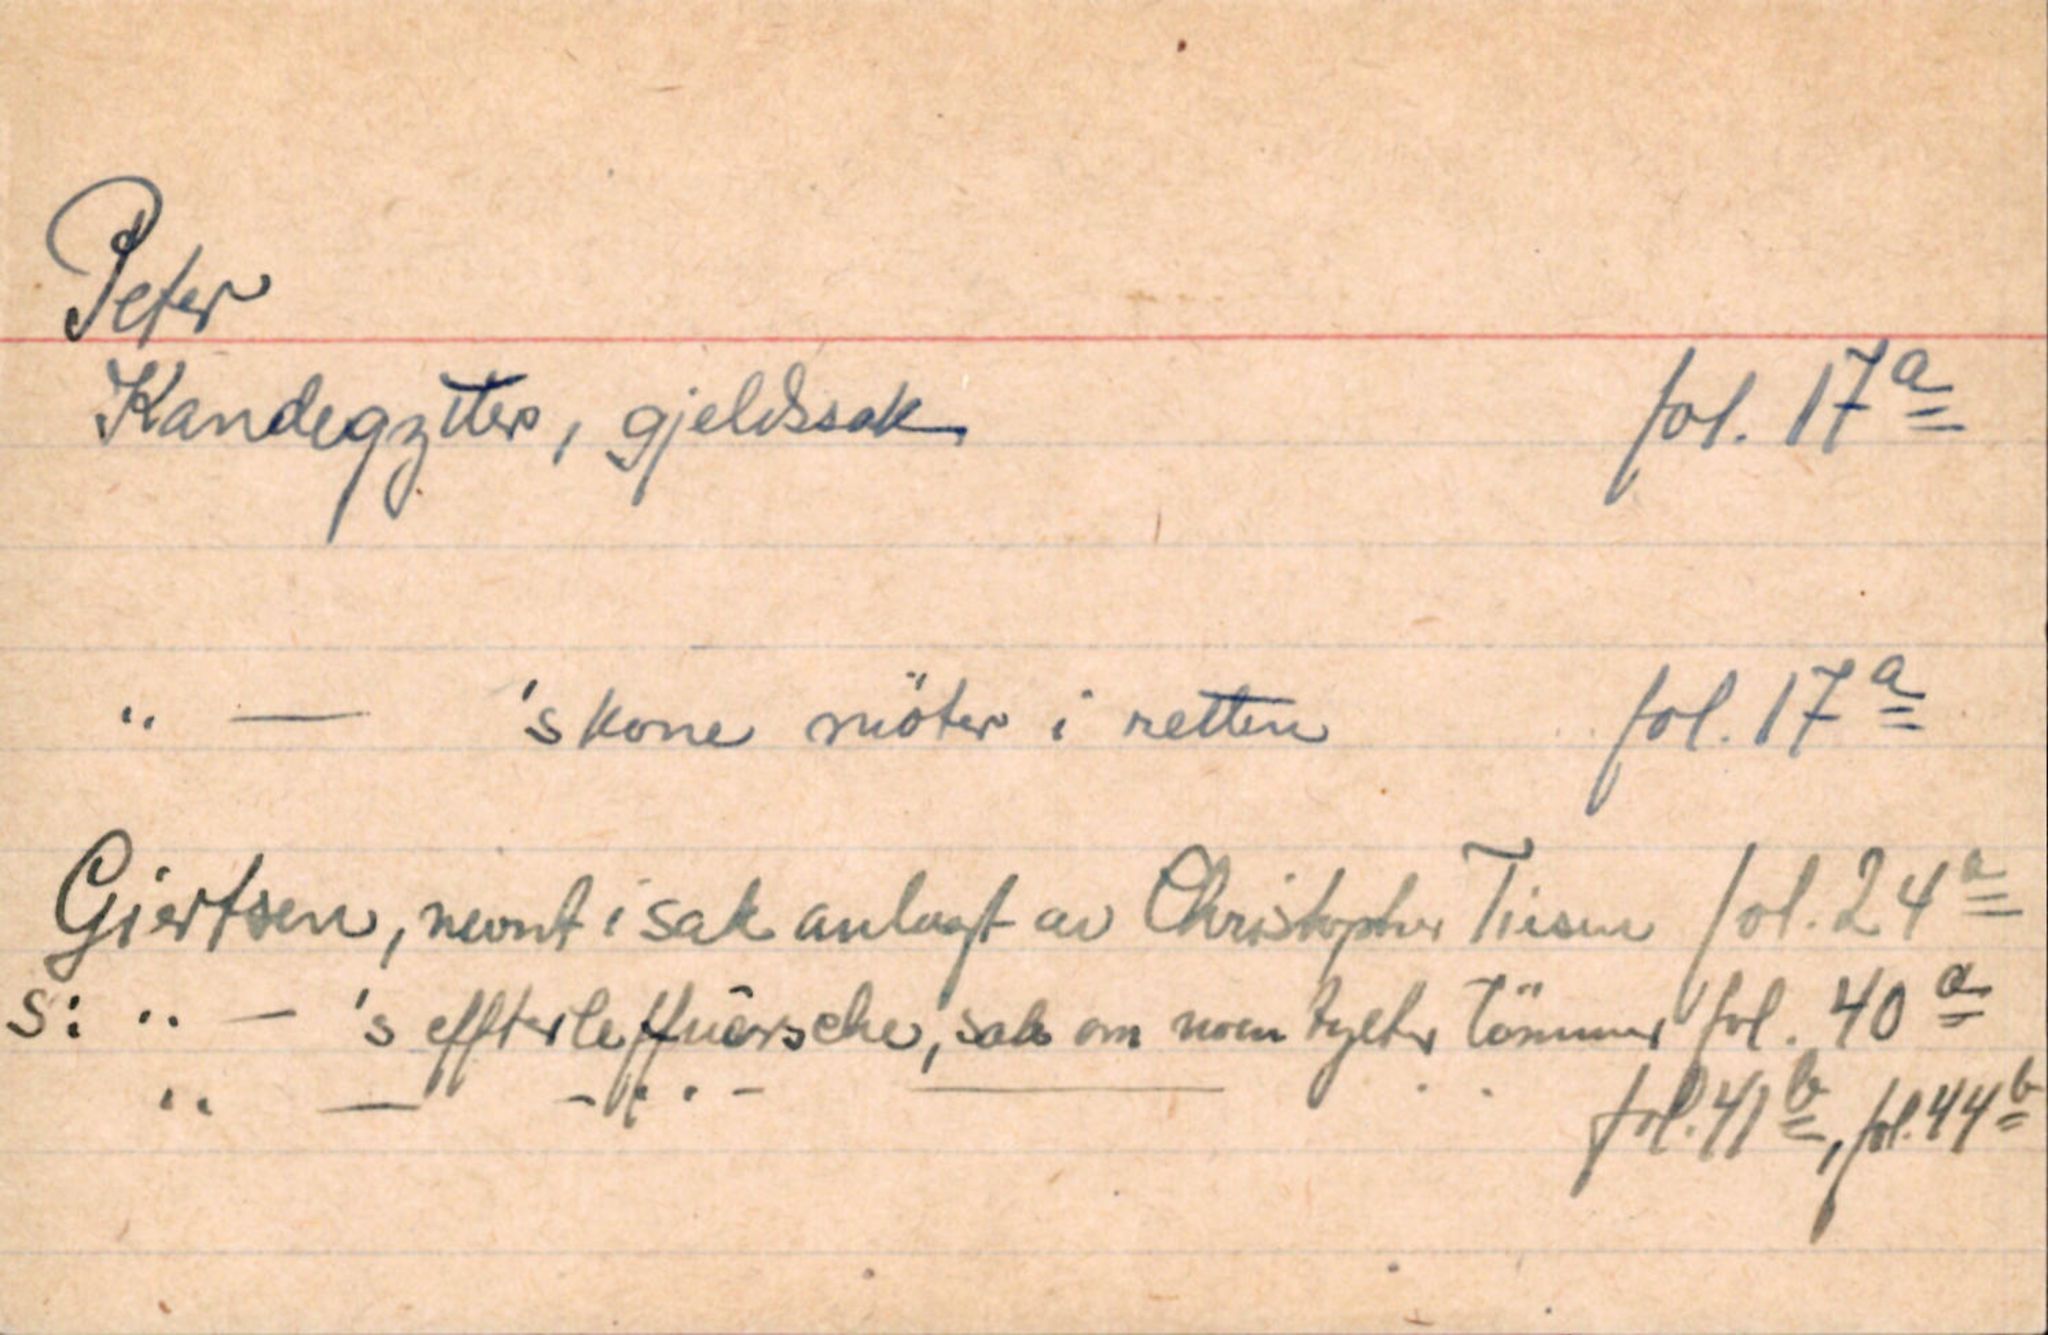 Peter
Kandegyter, gjeldssak fol. 17a
" — 's kone möter i retten fol. 17a
Giertsen, nevnt i sak anlagt av Christopher Tiesen fol. 24a
S: " — 's effterleffuersche, sak om noen tylter Tömmer fol. 40a
" — - " - — " fol. 41b, fol. 44b